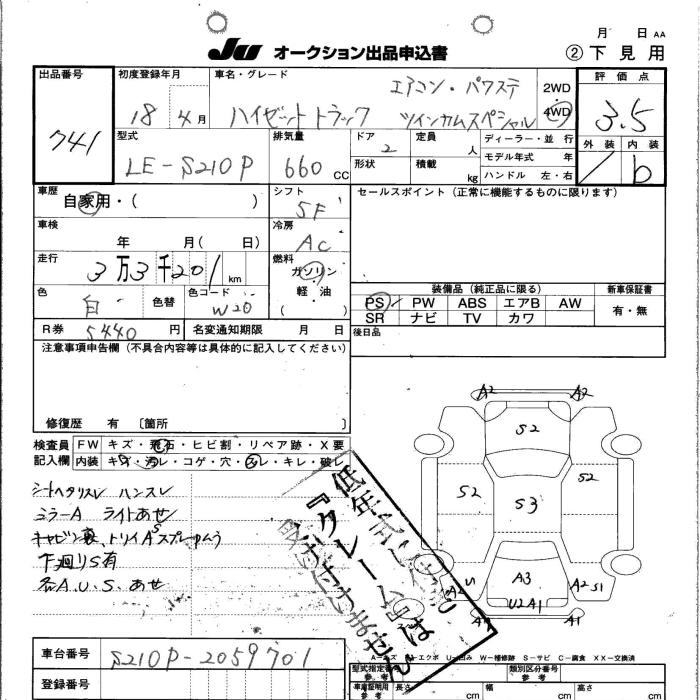 月 日 AA
JU オークション出品申込書 ② 下見用
出品番号 初度登録年月 車名・グレード 評価点
エアコン・パワステ 2WD
741 18 4月 ハイゼットトラック ツインカムスペシャル 4WD 3.5
型式 排気量 ドア 定員 ディーラー・並行 外装 内装
LE-S210P 660 CC 2 人 モデル年式 年
形状 積載 kg ハンドル 左・右 b
車歴 シフト セールスポイント (正常に機能するものに限ります)
自家用・( ) 5F
車検 冷房
年 月( 日) AC
走行 燃料
3万3千201 km ガソリン
軽油
( )
色 色替 色コード 装備品 (純正品に限る) 新車保証書
白 W20 PS PW ABS エアB AW 有・無
SR ナビ TV カワ
R券 5440 円 名変通知期限 月 日 後日品
注意事項申告欄 (不具合内容等は具体的に記入してください)
修復歴 有 〔箇所 〕
検査員 FW キズ・飛石・ヒビ割・リペア跡・X要
記入欄 内装 キズ・汚レ・コゲ・穴・スレ・キレ・破レ
シートヘタリスレ ハンスレ
ミラーA ライトあせ
キャビン裏、トリイAS
下廻りS有
各A.U.S.あせ
低年式
『クレーム』は
受け付けません
A2 A2
S2
S2 S3 S2
U1 A3 A2 S1
A2 U2 A1
A1 A1
車台番号 S210P-2059701
A-キズ E-エクボ U-凹み W-補修跡 S-サビ C-腐食 XX-交換済
登録番号 型式指定番号 参考 類別区分番号 参考
車庫証明用 参考 長さ cm 幅 cm 高さ cm